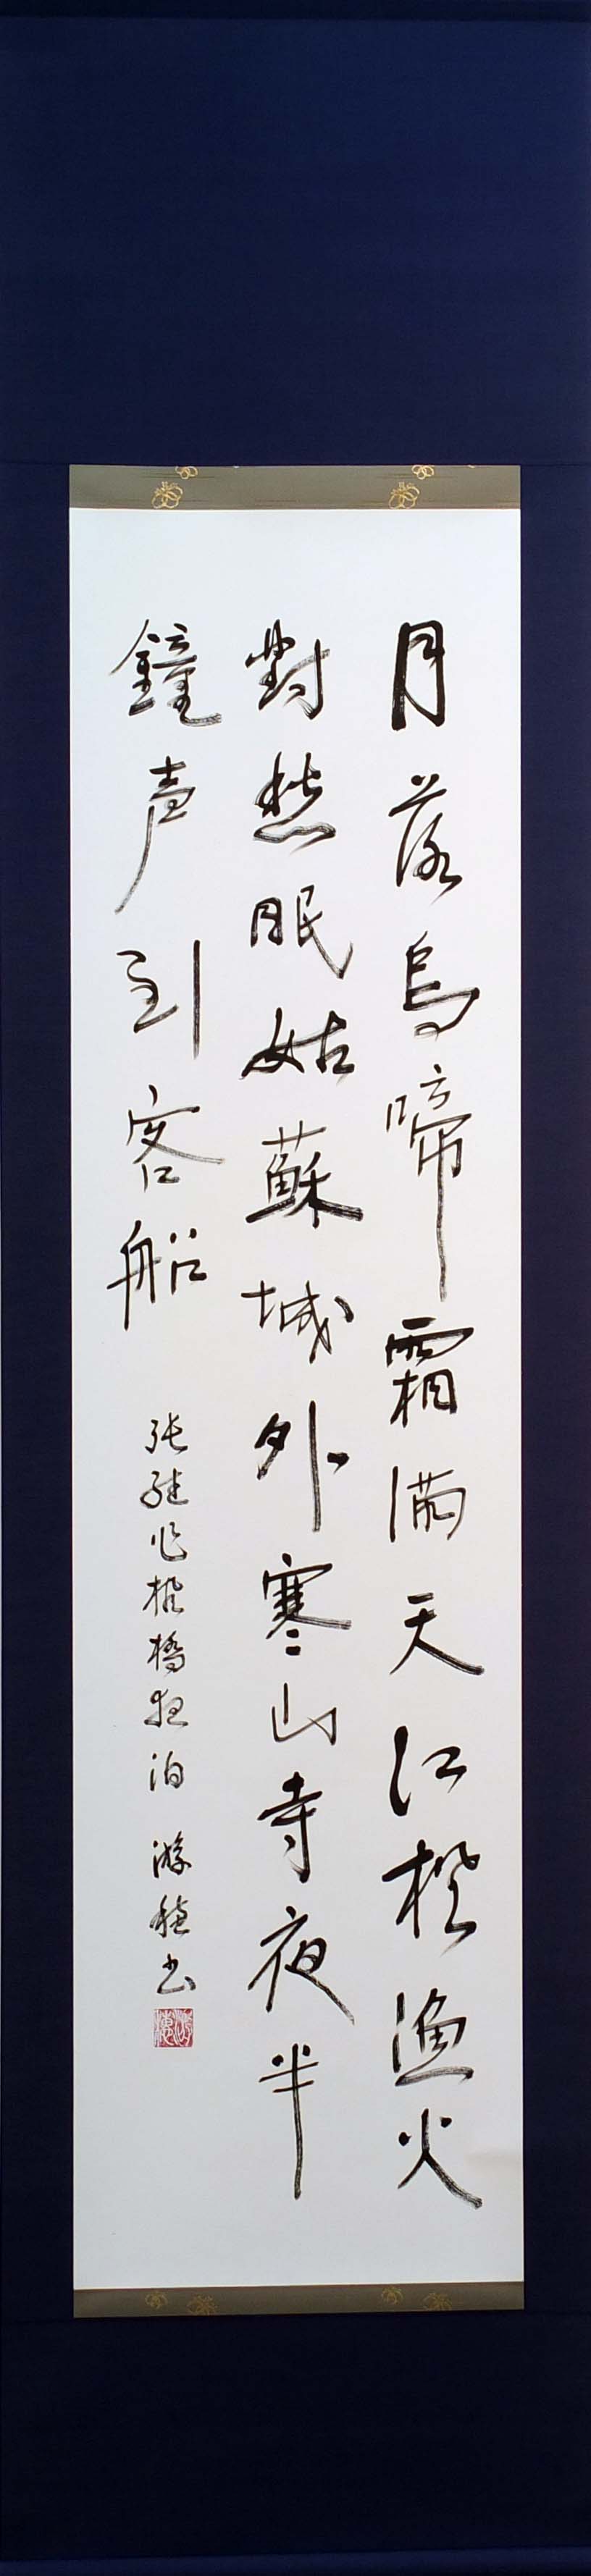 月落烏啼霜滿天江楓漁火
對愁眠姑蘇城外寒山寺夜半
鐘声到客船
张继作楓橋夜泊 游穂书